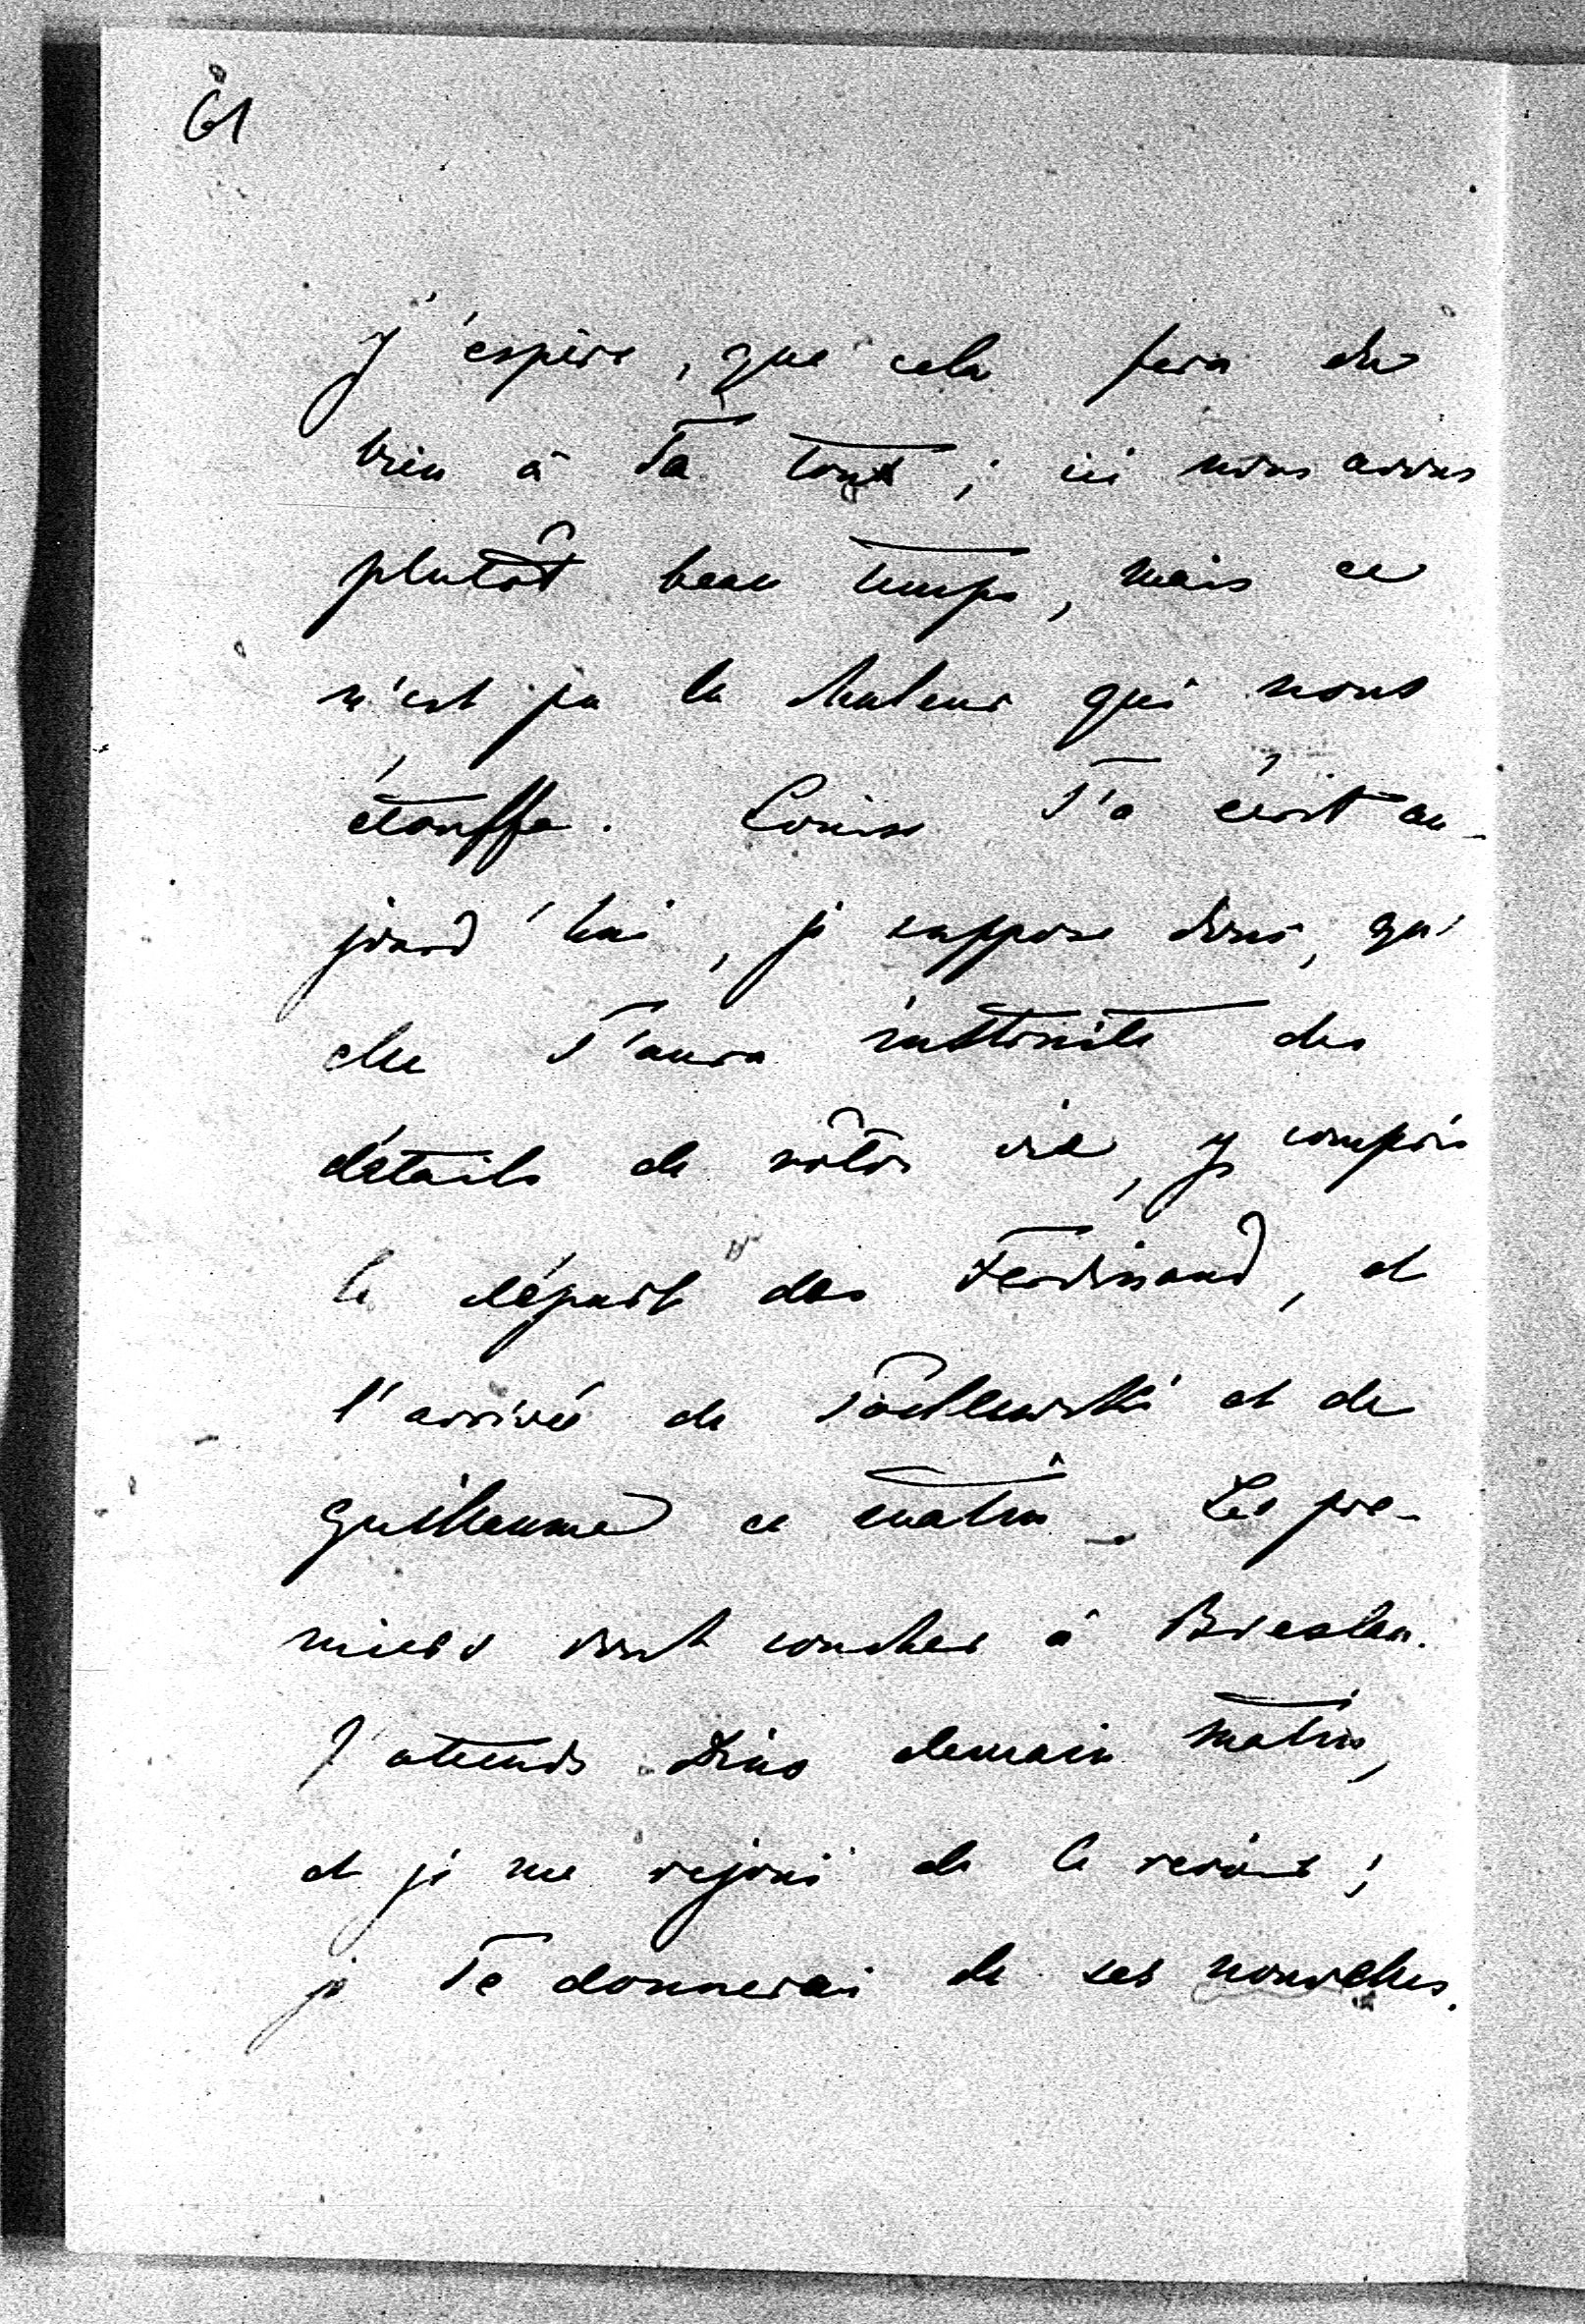 61
J'espère, que cela fera du
bien à Ta toux; ici nous avons
plutôt beau temps, mais ce
n'est pas la chaleur qui nous
étouffe. Louise T'a écrit au-
jourd'hui, je suppose donc, qu'
elle T'aura instruite des
détails de nôtre vie, y compris
le départ des Ferdinand, et
l'arrivée de et de
Guillaume ce matin. Les pre-
miers vont coucher à Breslau.
J'attends demain matin,
et je me rejoui de le revoir;
je Te donnerai de ses nouvelles.